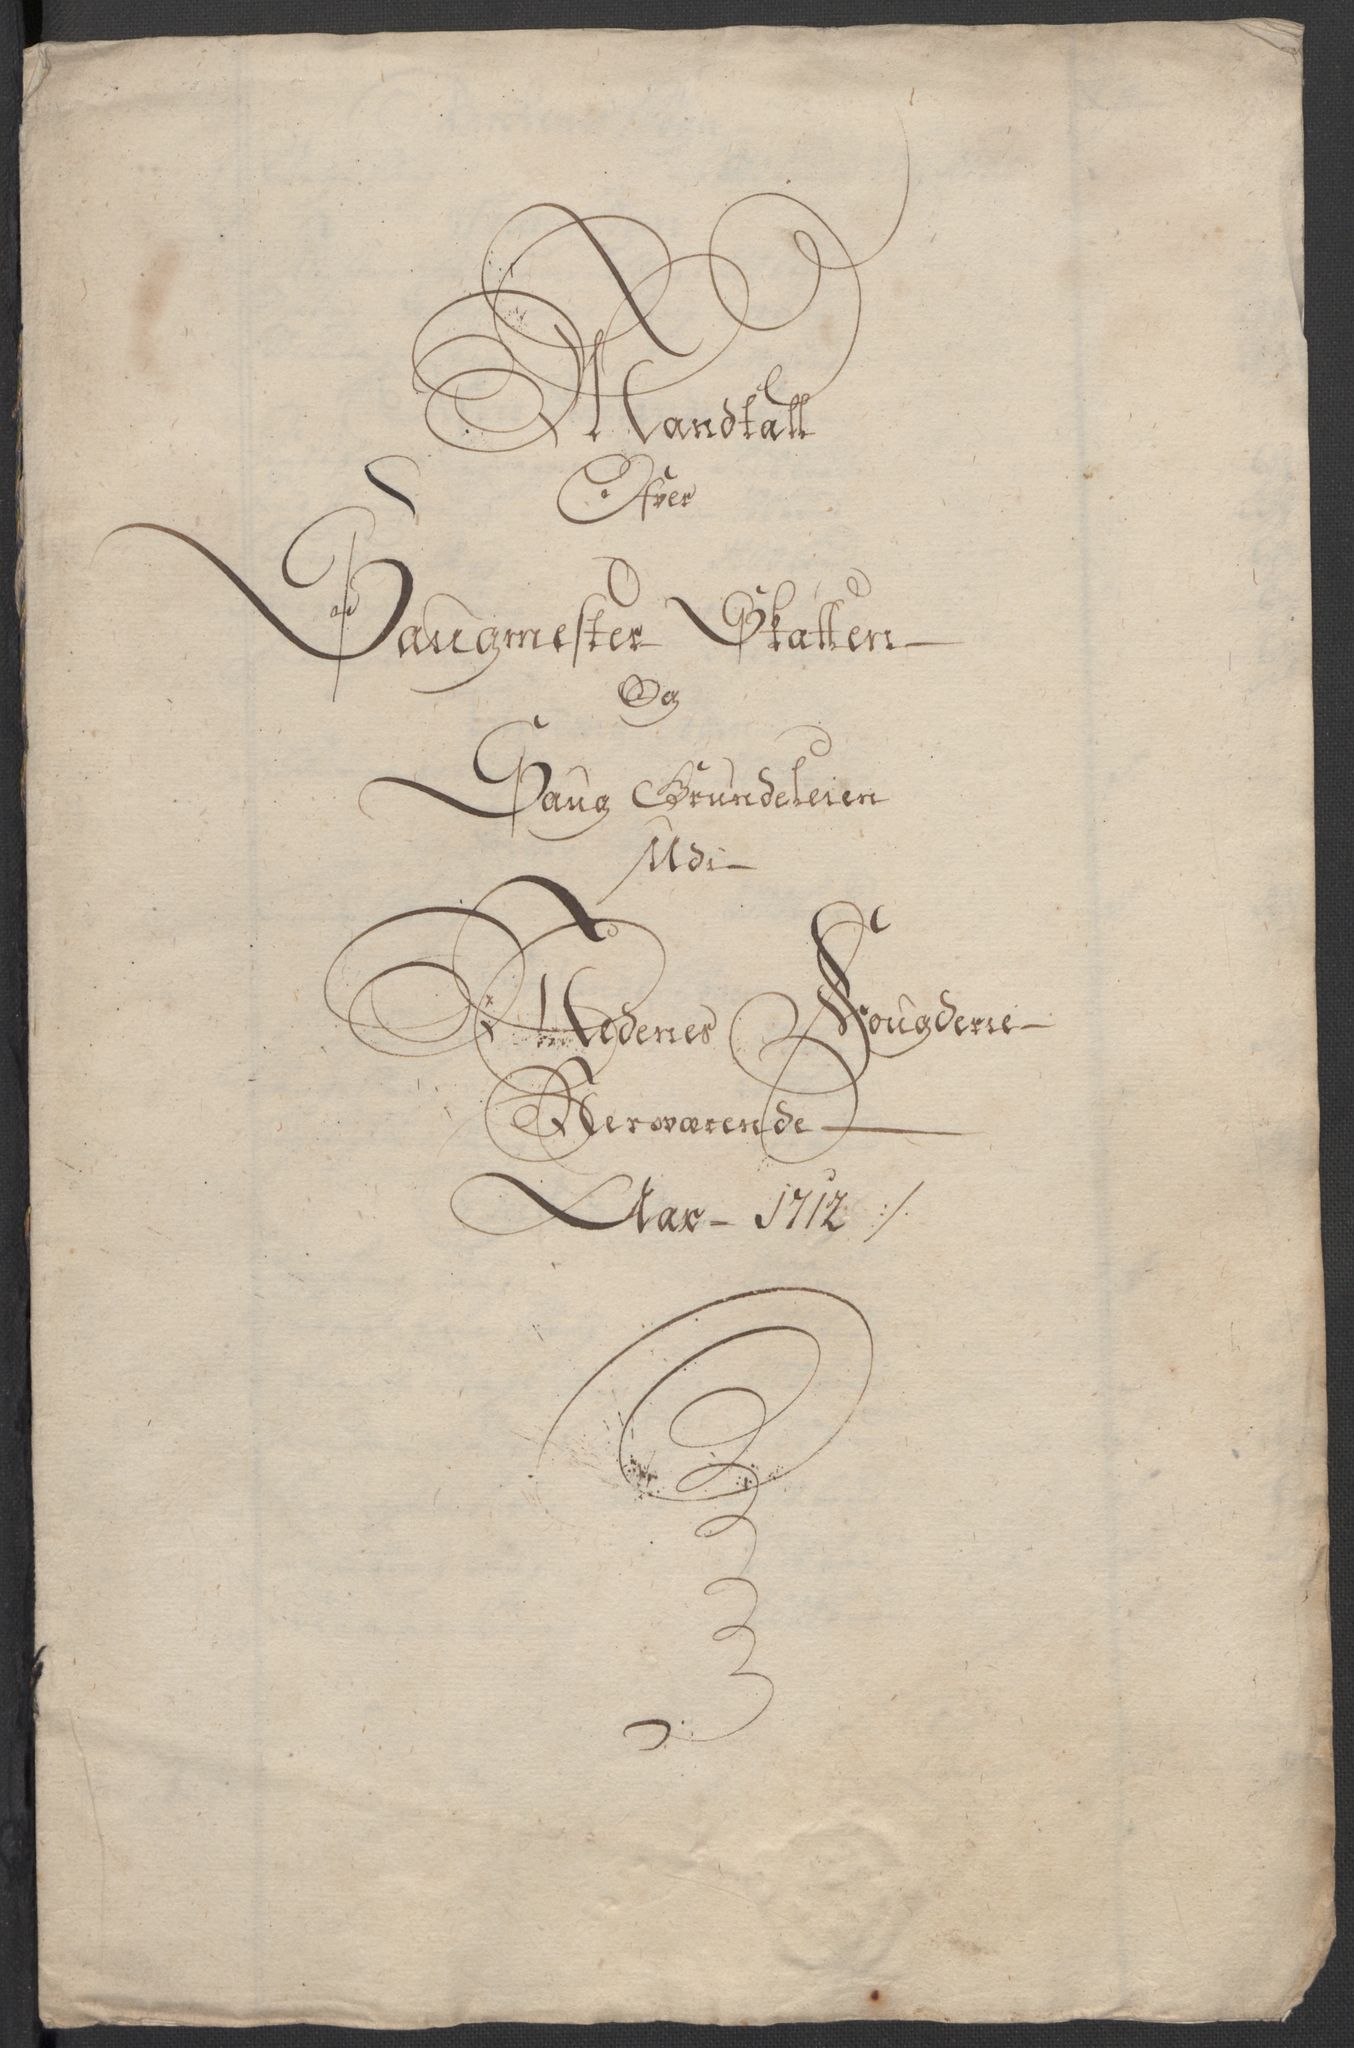 Mandtall
Ofver
Saugmester Skatten
Og
Saug Grundeleien
Udi
Nedenes Fougderie
Nerværende
Aar 1712 ./.